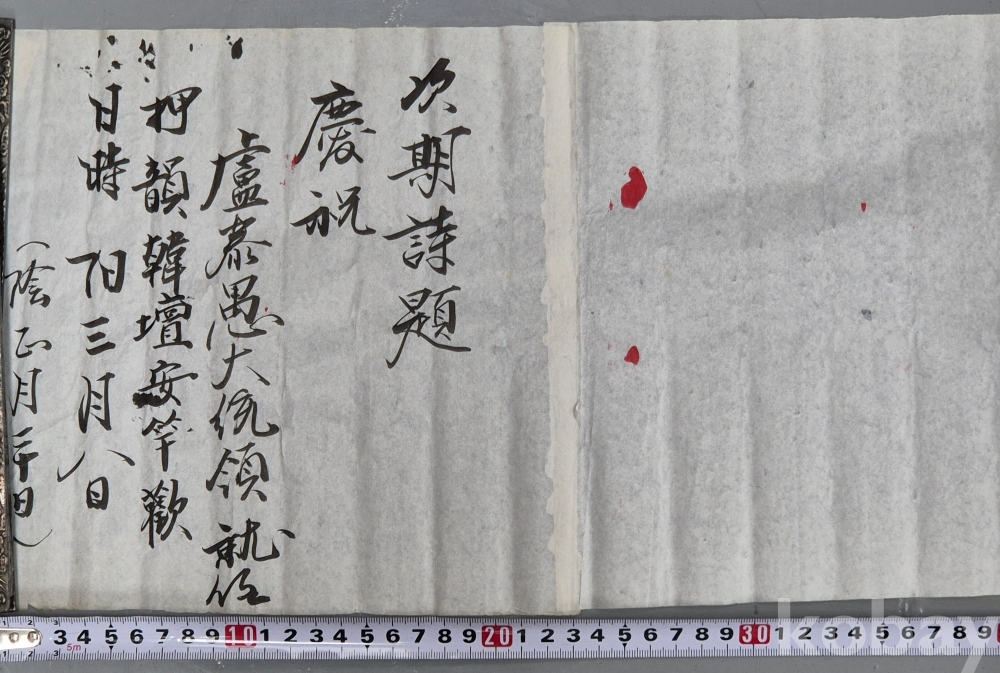 次期詩題
慶祝
盧泰愚大統領 就任
押韻 韓壇安竿歡
日時 阳三月八日
(陰正月二十日)
3 4 5 6 7 8 9 10 1 2 3 4 5 6 7 8 9 20 1 2 3 4 5 6 7 8 9 30 1 2 3 4 5 6 7 8 9
5m
kobay